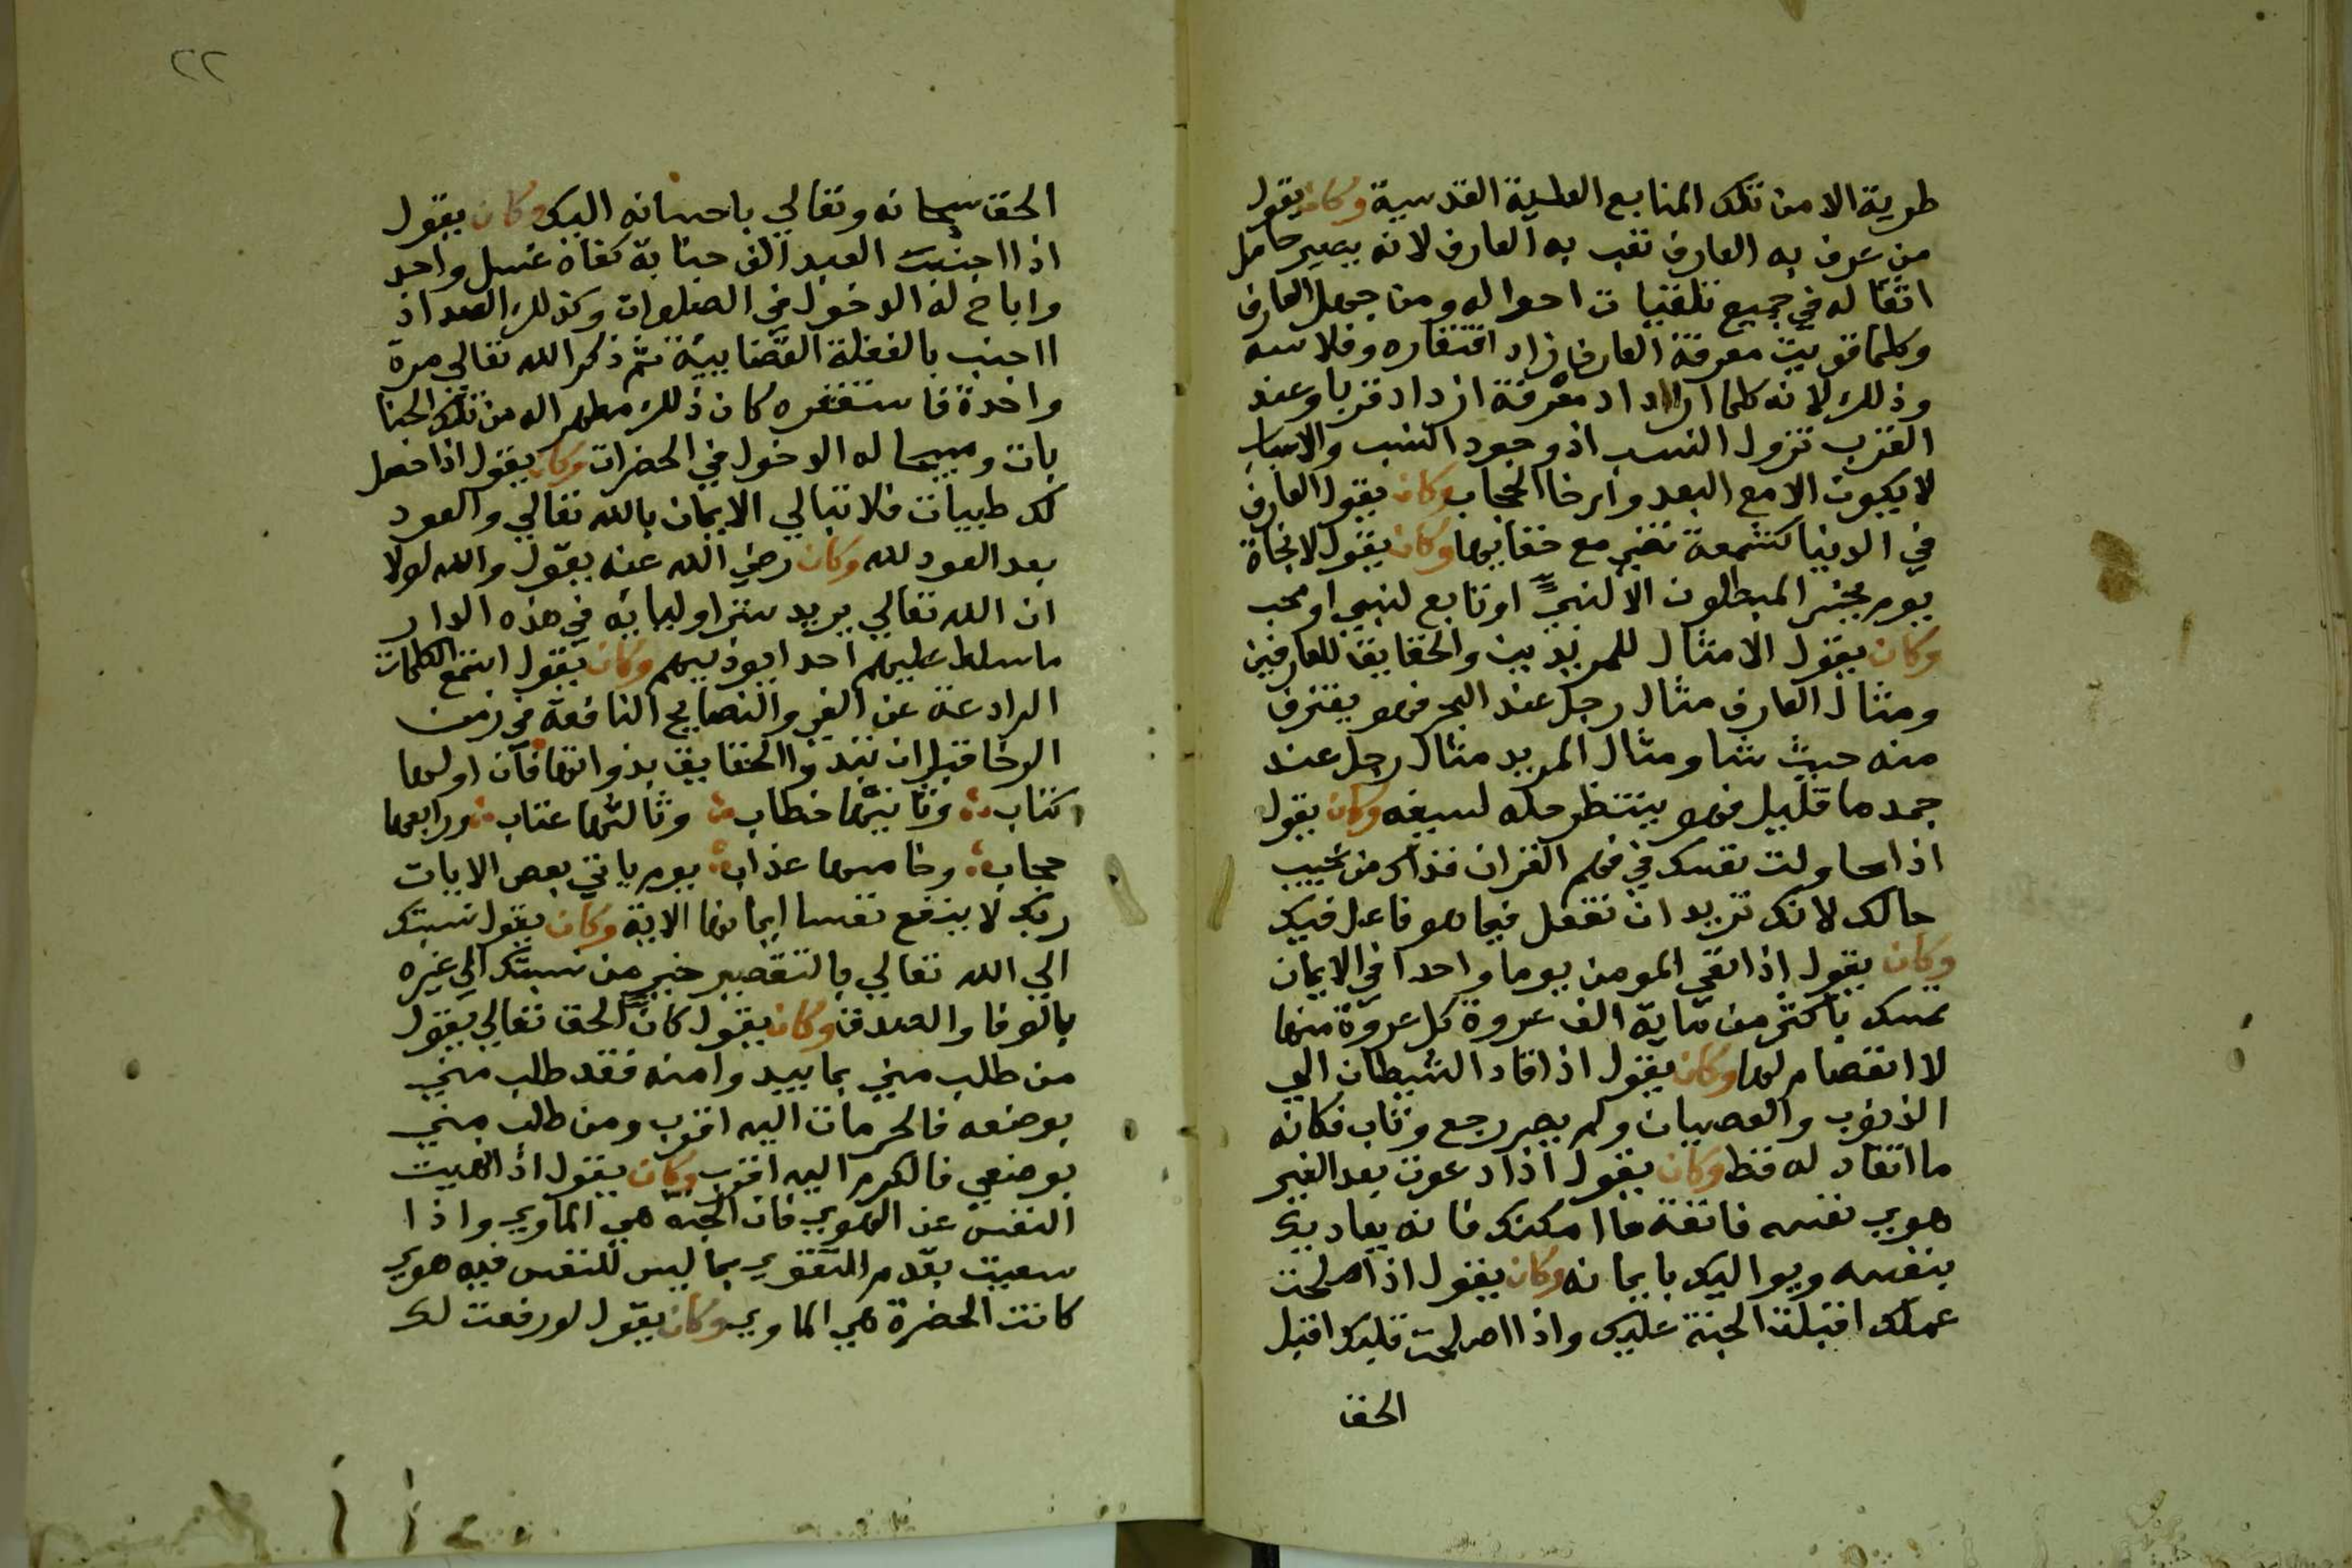 طوية الا من تلك المنابع العلية القدسية وكان يقول
من عرف به العارف تعب به العارف لانه يصير حامل
اثقاله في جميع تلقيات احواله ومن جهل العارف
وكلما قويت معرفة العارف زاد افتقاره وفلاسه
وذلك لانه كلما ازداد معرفة ازداد قربا وعند
القرب تزول النسب اذ وجود النسب والاسباب
لا يكون الا مع البعد وارخا الحجاب وكان يقول العارف
في الدنيا كشمعة تضي مع خفايها وكان يقول لا نجاة
يوم يخسر المبطلون الا لنبي او تابع لنبي او محب
وكان يقول الامثال للمريدين والحقايق للعارفين
ومثال العارف مثال رجل عند البحر فهو يغترف
منه حيث شا ومثال المريد مثال رجل عند
جمد ما قليل فهو ينتظر حله لسيغه وكان يقول
اذا حاولت نفسك في فهم القران فذاك من عجيب
حالك لانك تريد ان تفعل فيما هو فاعل فيك
وكان يقول اذا بقي المومن يوما واحدا في الايمان
تمسك باكثر من ماية الف عروة كل عروة منها
لا انفصام لها وكان يقول اذا قاد الشيطان الي
الذنوب والعصيان ولم يصر رجع وتاب فكانه
ما انقاد له قط وكان يقول اذا دعوت بعد الغير
هوي نفسه فاتقه ما امكنك فانه يعاديك
بنفسه ويواليك بايمانه وكان يقول اذا اصلحت
عملك اقبلت الجنة عليك واذا اصلحت قلبك اقبل
الحق
٢٢
الحق سبحانه وتعالي باحسانه اليك وكان يقول
اذا اجنبت العبد الف جنابة كفاه غسل واحد
واباح له الدخول في الصلوات وكذلك العبد اذ
ااجنب بالغفلة ثم ذكر الله تعالي مرة
واحدة فاستغفره كان ذلك مطهرا له من تلك الجنا
بات ومبيحا له الدخول في الحضرات وكان يقول اذا حصل
لك طيبات فلا تبالي الايمان بالله تعالي والعود
بعد العود لله وكان رضي الله عنه يقول والله لولا
ان الله تعالي يريد ستر اوليايه في هذه الدار
ما سلط عليهم احدا يوذيهم وكان يقول استمع الكلمات
الرادعة عن الغي والنصايح النافعة في زمن
الرخا قبل ان تبدوا الحقايق بذواتها فان اولها
كتاب وثانيها خطاب وثالثها عتاب ورابعها
حجاب وخامسها عذاب يوم ياتي بعض الايات
ربك لا ينفع نفسا ايمانها الاية وكان يقول نسبتك
الي الله تعالي بالتقصير خير من نسبتك الي غيره
بالوفا والصدق وكان يقول كان الحق تعالي يقول
من طلب مني بما يبدوا منه فقد طلب مني
بوضعه فالحرمان اليه اقرب ومن طلب مني
بوضعي فالكرم اليه اقرب وكان يقول اذا نهيت
النفس عن الهوي فان الجنة هي الماوي واذا
سعيت بقدم التقوي بما ليس للنفس فيه هوي
كانت الحضرة هي الماوي وكان يقول لو رفعت لك